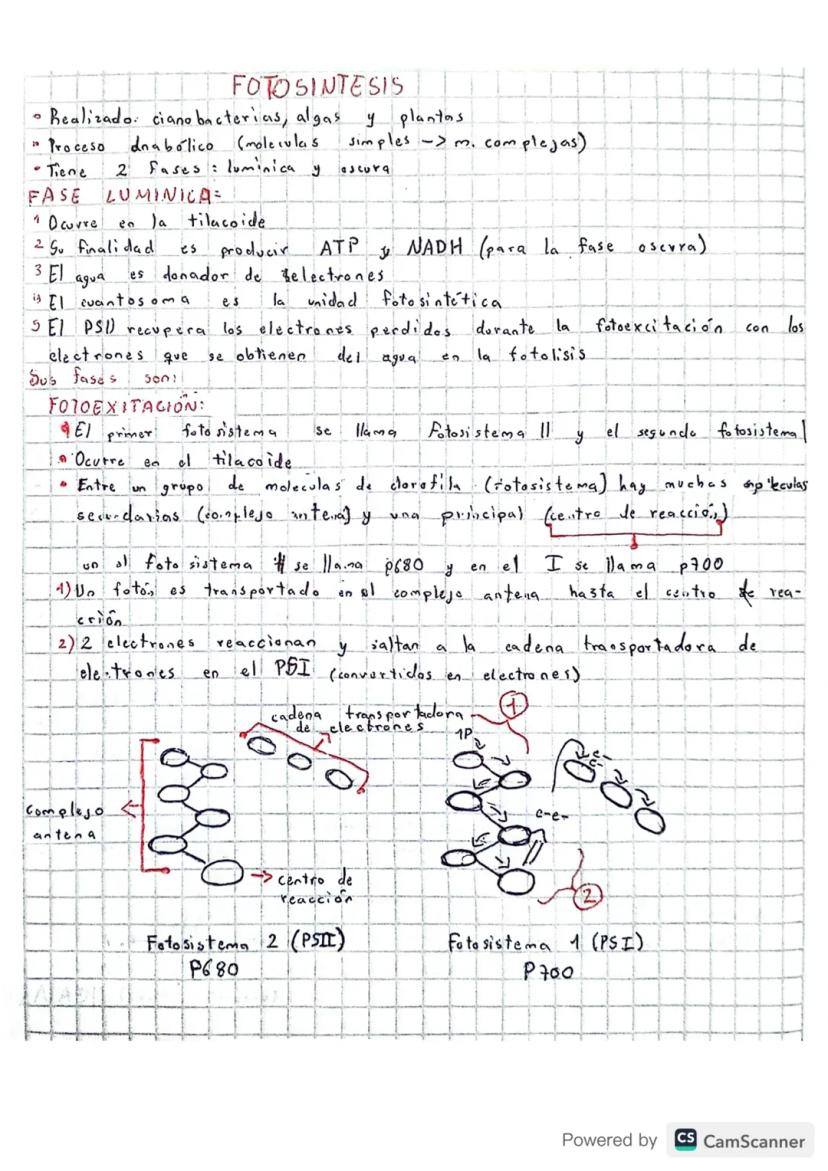 FOTOSINTESIS
• Realizado: cianobacterias, algas y plantas
• Proceso anabólico (moleculas simples -> m. complejas)
• Tiene 2 fases: luminica y oscura
FASE LUMINICA:
1 Ocurre en la tilacoide
2 Su finalidad es producir ATP y NADH (para la fase oscura)
3 El agua es donador de electrones
4 El cuantosoma es la unidad fotosintética
5 El PSII recupera los electrones perdidos durante la fotoexcitación con los
electrones que se obtienen del agua en la fotolisis
Sus fases son:
FOTOEXITACIÓN:
• El primer fotosistema se llama Fotosistema II y el segundo fotosistema I
• Ocurre en el tilacoide
• Entre un grupo de moleculas de clorofila (fotosistema) hay muchas moleculas
secundarias (complejo antena) y una principal (centro de reacción)
en el foto sistema II se llama p680 y en el I se llama p700
1) Un fotón es transportado en el complejo antena hasta el centro de rea-
cción
2) 2 electrones reaccionan y saltan a la cadena transportadora de
electrones en el PSI (convertidos en electrones)
cadena transportadora
de electrones
1
1P
e-
e-
Complejo
antena
e-e-
centro de
reacción
2
Fotosistema 2 (PSII)
P680
Fotosistema 1 (PSI)
P700
Powered by CS CamScanner